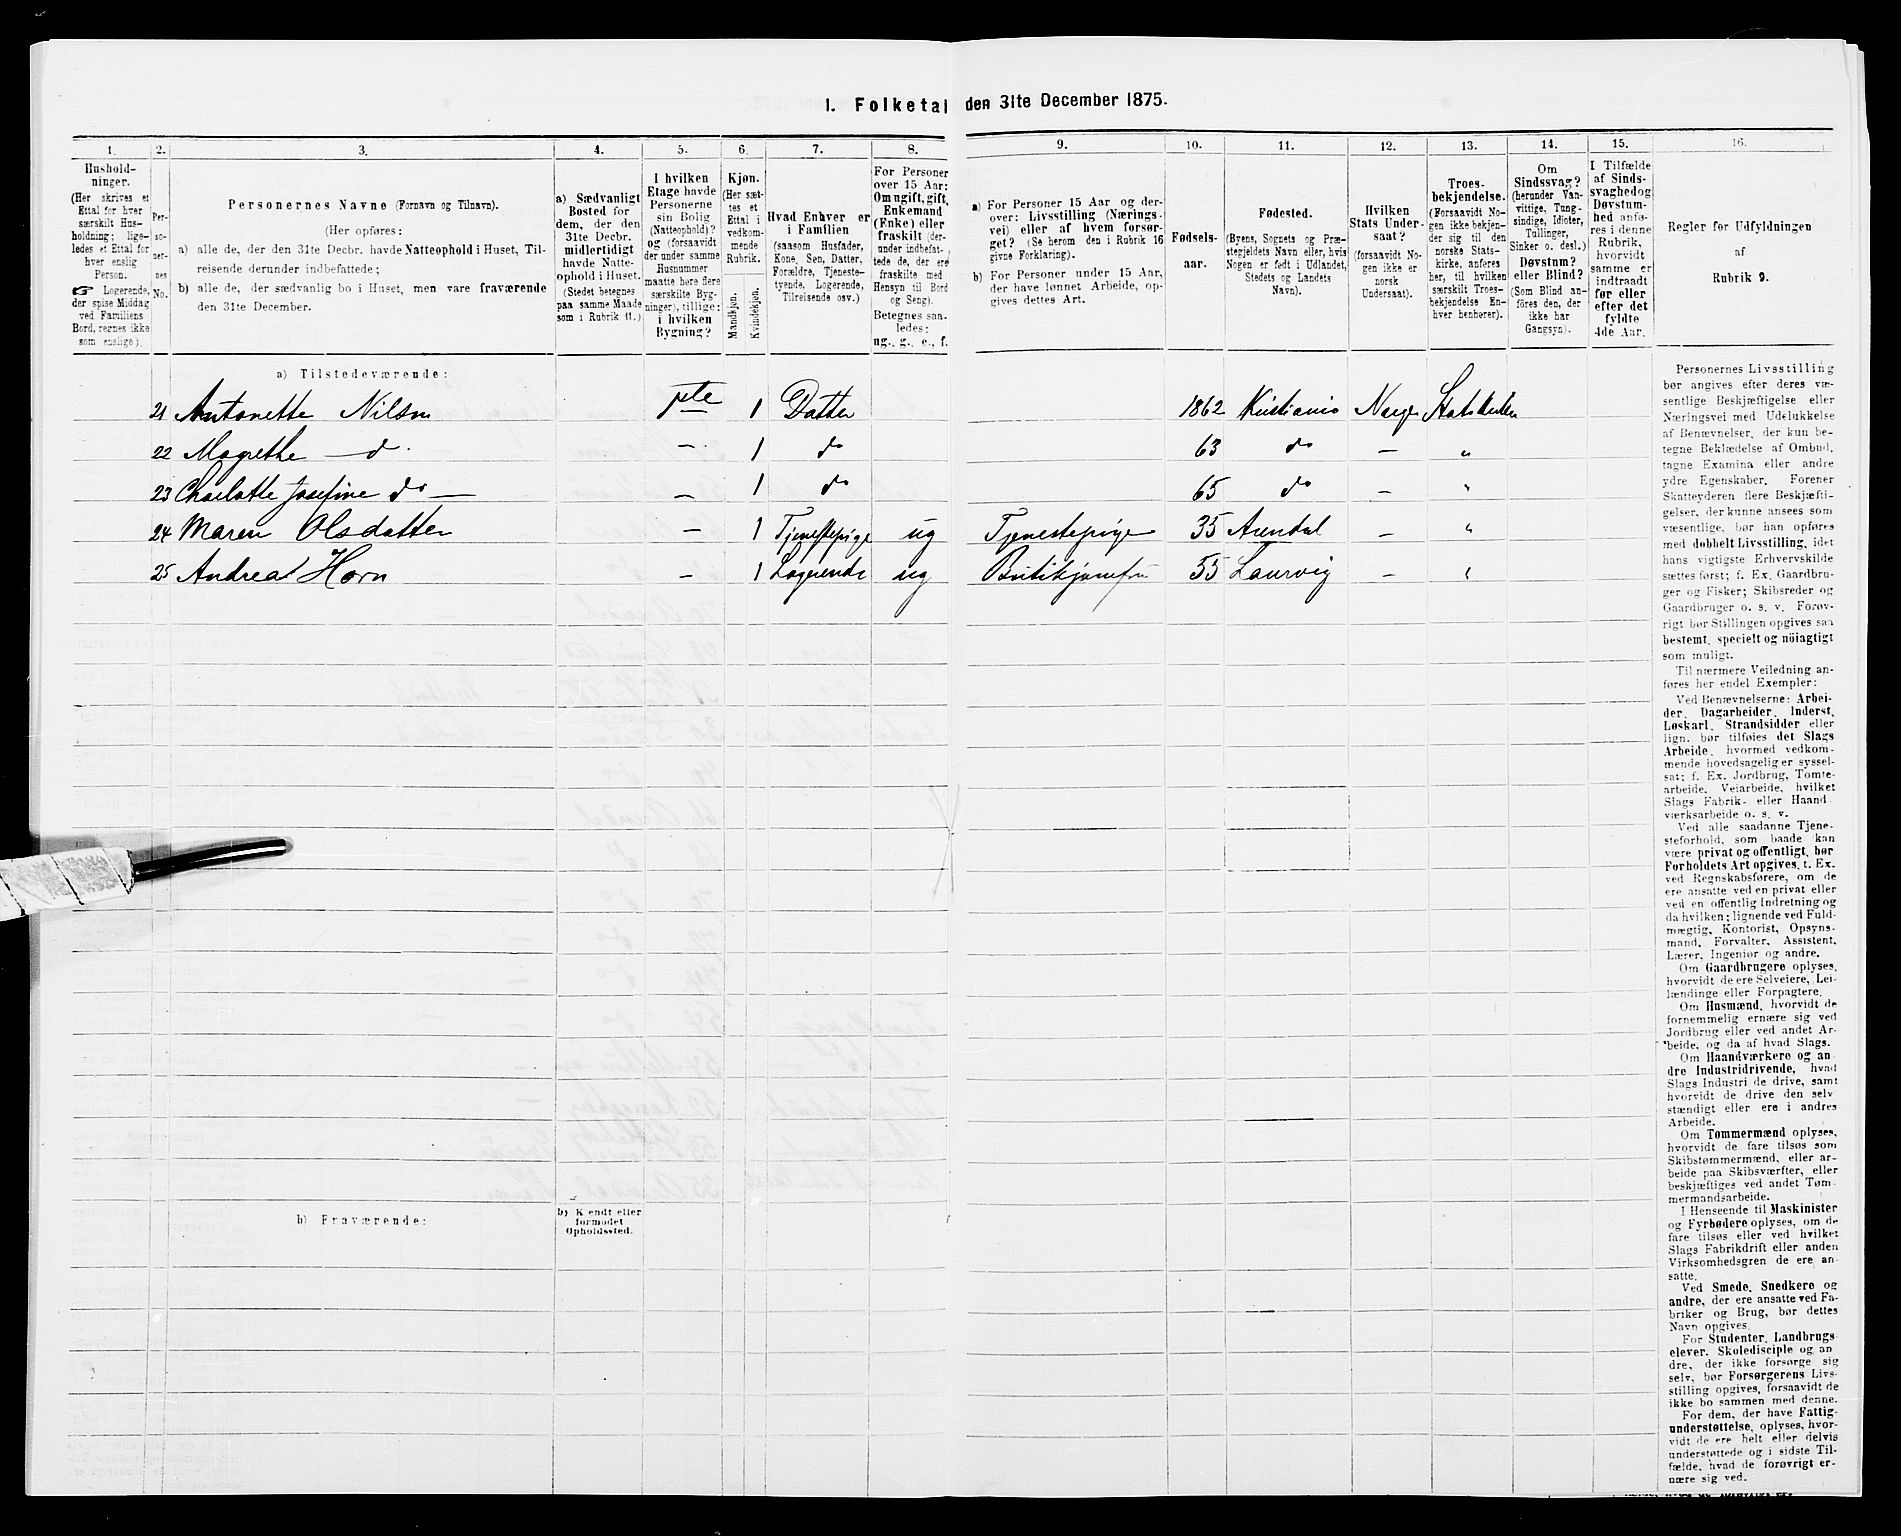 1. Folketal den 31te December 1875.
1.
2.
3.
4.
5.
6.
7.
8.
9.
10.
11.
12.
13.
14.
15.
16.
Hushold-
ninger.
(Her skrives et
Ettal for hver
særskilt Hus-
holdning; lige-
ledes et Ettal for
hver enslig
Person.
☞ Logerende,
der spise Middag
ved Familiens
Bord, regnes ikke
som enslige).
Per-
so-
ner-
nes
No.
Personernes Navne (Fornavn og Tilnavn).
(Her opføres:
a) alle de, der den 31te Decbr. havde Natteophold i Huset, Til-
reisende derunder indbefattede;
b) alle de, der sædvanlig bo i Huset, men vare fraværende
den 31te December.
a) Sædvanligt
Bosted for
dem, der den
31te Decbr.
midlertidigt
havde Natte-
ophold i Huset.
(Stedet betegnes
paa samme Maade
som i Rubrik 11.)
I hvilken
Etage havde
Personerne
sin Bolig
(Natteophold)?
og (forsaavidt
der under samme
Husnummer
maatte høre flere
særskilte Byg-
ninger), tillige:
i hvilken
Bygning?
Kjøn.
(Her sæt-
tes et
Ettal i
vedkom-
mende
Rubrik.
Mandkjøn.
Kvindekjøn.
Hvad Enhver er
i Familien
(saasom Husfader,
Kone, Søn, Datter,
Forældre, Tjeneste-
tyende, Logerende,
Tilreisende osv.)
For Personer
over 15 Aar:
Om ugift, gift,
Enkemand
(Enke) eller
fraskilt (der-
under indbefat-
tede de, der ere
fraskilte med
Hensyn til Bord
og Seng).
Betegnes saa-
ledes:
ug., g., e., f.
a) For Personer 15 Aar og der-
over: Livsstilling (Nærings-
vei) eller af hvem forsør-
get? (Se herom den i Rubrik 16
givne Forklaring).
b) For Personer under 15 Aar,
der have lønnet Arbeide, op-
gives dettes Art.
Fødsels-
aar.
Fødested.
(Byens, Sognets og Præ-
stegjeldets Navn eller, hvis
Nogen er født i Udlandet,
Stedets og Landets
Navn).
Hvilken
Stats Under-
saat?
(forsaavidt No-
gen ikke er
norsk
Undersaat).
Troes-
bekjendelse.
(Forsaavidt No-
gen ikke bekjen-
der sig til den
norske Stats-
kirke, anføres
her, til hvilken
særskilt Troes-
bekjendelse En-
hver henhører).
Om
Sindssvag?
(herunder Van-
vittige, Tung-
sindige, Idioter,
Tullinger,
Sinker o. desl.)
Døvstum?
eller Blind?
(Som Blind an-
føres den, der
ikke har
Gangsyn).
I Tilfælde
af Sinds-
svaghed og
Døvstum-
hed anfø-
res i denne
Rubrik,
hvorvidt
samme er
indtraadt
før eller
efter det
fyldte
4de Aar.
Regler for Udfyldningen
af
Rubrik 9.
a) Tilstedeværende:
21 Antonette Nilsen 1ste 1 Datter 1862 Kristiania Norge Statskirken
22 Magrethe — d. — 1 do 63 do — "
23 Charlotte Josefine do — — 1 do 65 do — "
24 Maren Olsdatter — 1 Tjenestepige ug Tjenestepige 35 Arendal — "
25 Andrea Horn — 1 Logerende ug Butikjomfru 55 Laurvig — "
b) Fraværende:
b) Kendt eller
formodet
Opholdssted.
Personernes Livsstilling
bør angives efter deres væ-
sentlige Beskjæftigelse eller
Næringsvei med Udelukkelse
af Benævnelser, der kun be-
tegne Beklædelse af Ombud,
tagne Examina eller andre
ydre Egenskaber. Forener
Skatteyderen flere Beskjæfti-
gelser, der kunne ansees som
væsentlige, bør han opføres
med dobbelt Livsstilling, idet
hans vigtigste Erhvervskilde
sættes først; f. Ex. Gaardbru-
ger og Fisker; Skibsreder og
Gaardbruger o. s. v. Forøv-
rigt bør Stillingen opgives saa
bestemt, specielt og nöiagtigt
som muligt.
Til nærmere Veiledning an-
føres her endel Exempler:
Ved Benævnelserne: Arbei-
der, Dagarbeider, Inderst,
Løskarl, Strandsidder eller
lign. bør tilføies det Slags
Arbeide, hvormed vedkom-
mende hovedsagelig er syssel-
sat; f. Ex. Jordbrug, Tomte-
arbeide, Veiarbeide, hvilket
Slags Fabrik- eller Haand-
værksarbeide o. s. v.
Ved alle saadanne Tjene-
steforhold, som baade kan
være privat og offentligt, bør
Forholdets Art opgives, t. Ex.
ved Regnskabsførere, om de
ere ansatte ved en privat eller
ved en offentlig Indretning og
da hvilken; lignende ved Fuld-
mægtig, Kontorist, Opsyns-
mand, Forvalter, Assistent,
Lærer, Ingeniør og andre.
Om Gaardbrugere oplyses,
hvorvidt de ere Selveiere, Lei-
lændinge eller Forpagtere.
Om Husmænd, hvorvidt de
fornemmelig ernære sig ved
Jordbrug eller ved andet Ar-
beide, og da af hvad Slags.
Om Haandværkere og an
dre Industridrivende, hvad
Slags Industri de drive, samt
hvorvidt de drive den selv
stændigt eller ere i andres
Arbeide.
Om Tømmermænd oplyses,
hvorvidt de fare tilsøs som
Skibstømmermænd, eller ar-
beide paa Skibsværfter, eller
beskjæftiges ved andet Tøm-
mermandsarbeide.
I Henseende til Maskinister
og Fyrbødere oplyses, om de
fare tilsøs eller ved hvilket
Slags Fabrikdrift eller anden
Virksomhedsgren de ere an-
satte.
Ved Smede, Snedkere og
andre, der ere ansatte ved Fa-
briker og Brug, bør dettes
Navn opgives.
For Studenter, Landbrugs
elever, Skoledisciple og an
dre, der ikke forsørge sig
selv, bør Forsørgerens Livs-
stilling opgives, forsaavidt de
ikke bo sammen med denne.
For dem, der have Fattig-
understøttelse, oplyses, hvor-
vidt de ere helt eller delvis
understøttede og i sidste Til-
fælde, hvad de forøvrigt er-
nære sig ved.